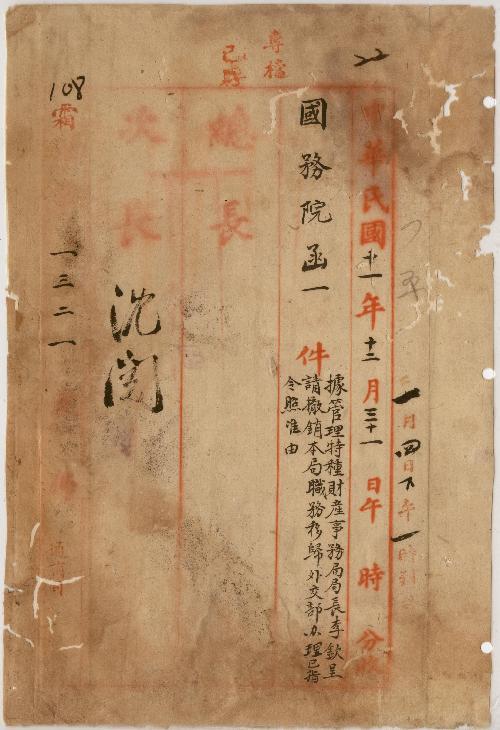 專檔
已辦
中華民國十一年十二月三十一日午 時 分收
一月四日下午一時到
國務院函一件
據管理特種財產事務局局長李欽呈
請撤銷本局職務移歸外交部办理已指
令照准由
總長
次長
沈閱
108
霜
一三二一